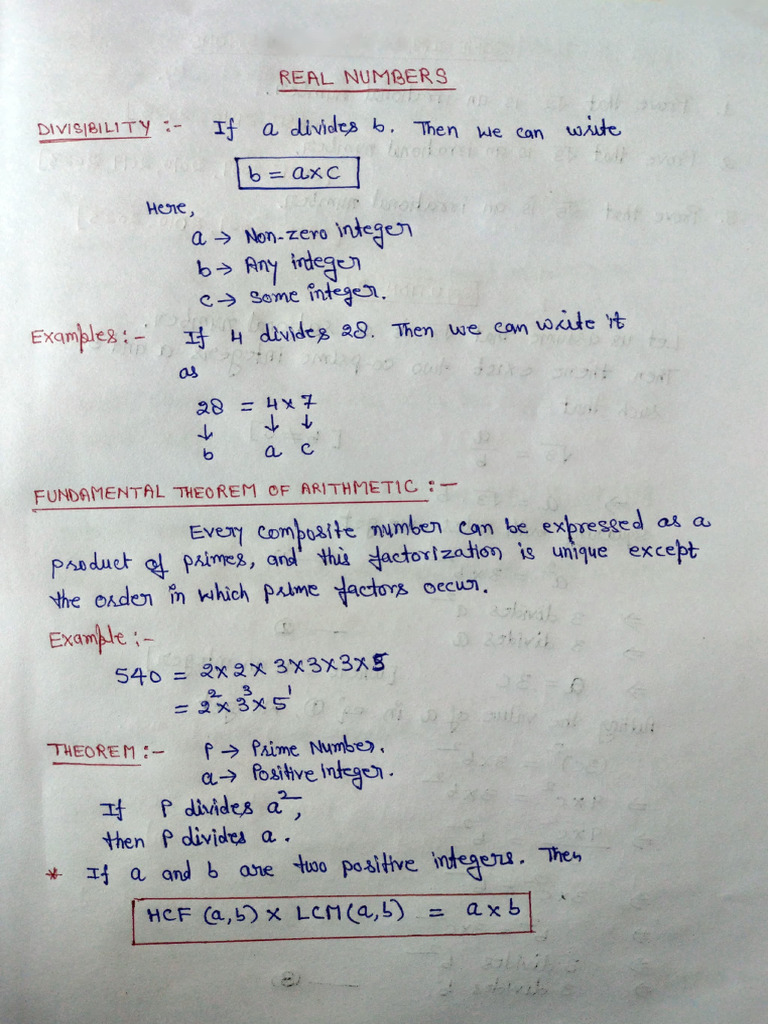 REAL NUMBERS
DIVISIBILITY :- If a divides b. Then we can write
b = a×c
Here,
a → Non-zero integer
b → Any integer
c → Some integer.
Examples :- If 4 divides 28. Then we can write it
as
28 = 4 × 7
↓ ↓ ↓
b a c
FUNDAMENTAL THEOREM OF ARITHMETIC :-
Every composite number can be expressed as a
product of primes, and this factorization is unique except
the order in which prime factors occur.
Example :-
540 = 2×2×3×3×3×5
= 2²×3³×5¹
THEOREM :- P → Prime Number.
a → Positive integer.
If P divides a²,
then P divides a.
* If a and b are two positive integers. Then
HCF (a,b) × LCM(a,b) = a×b